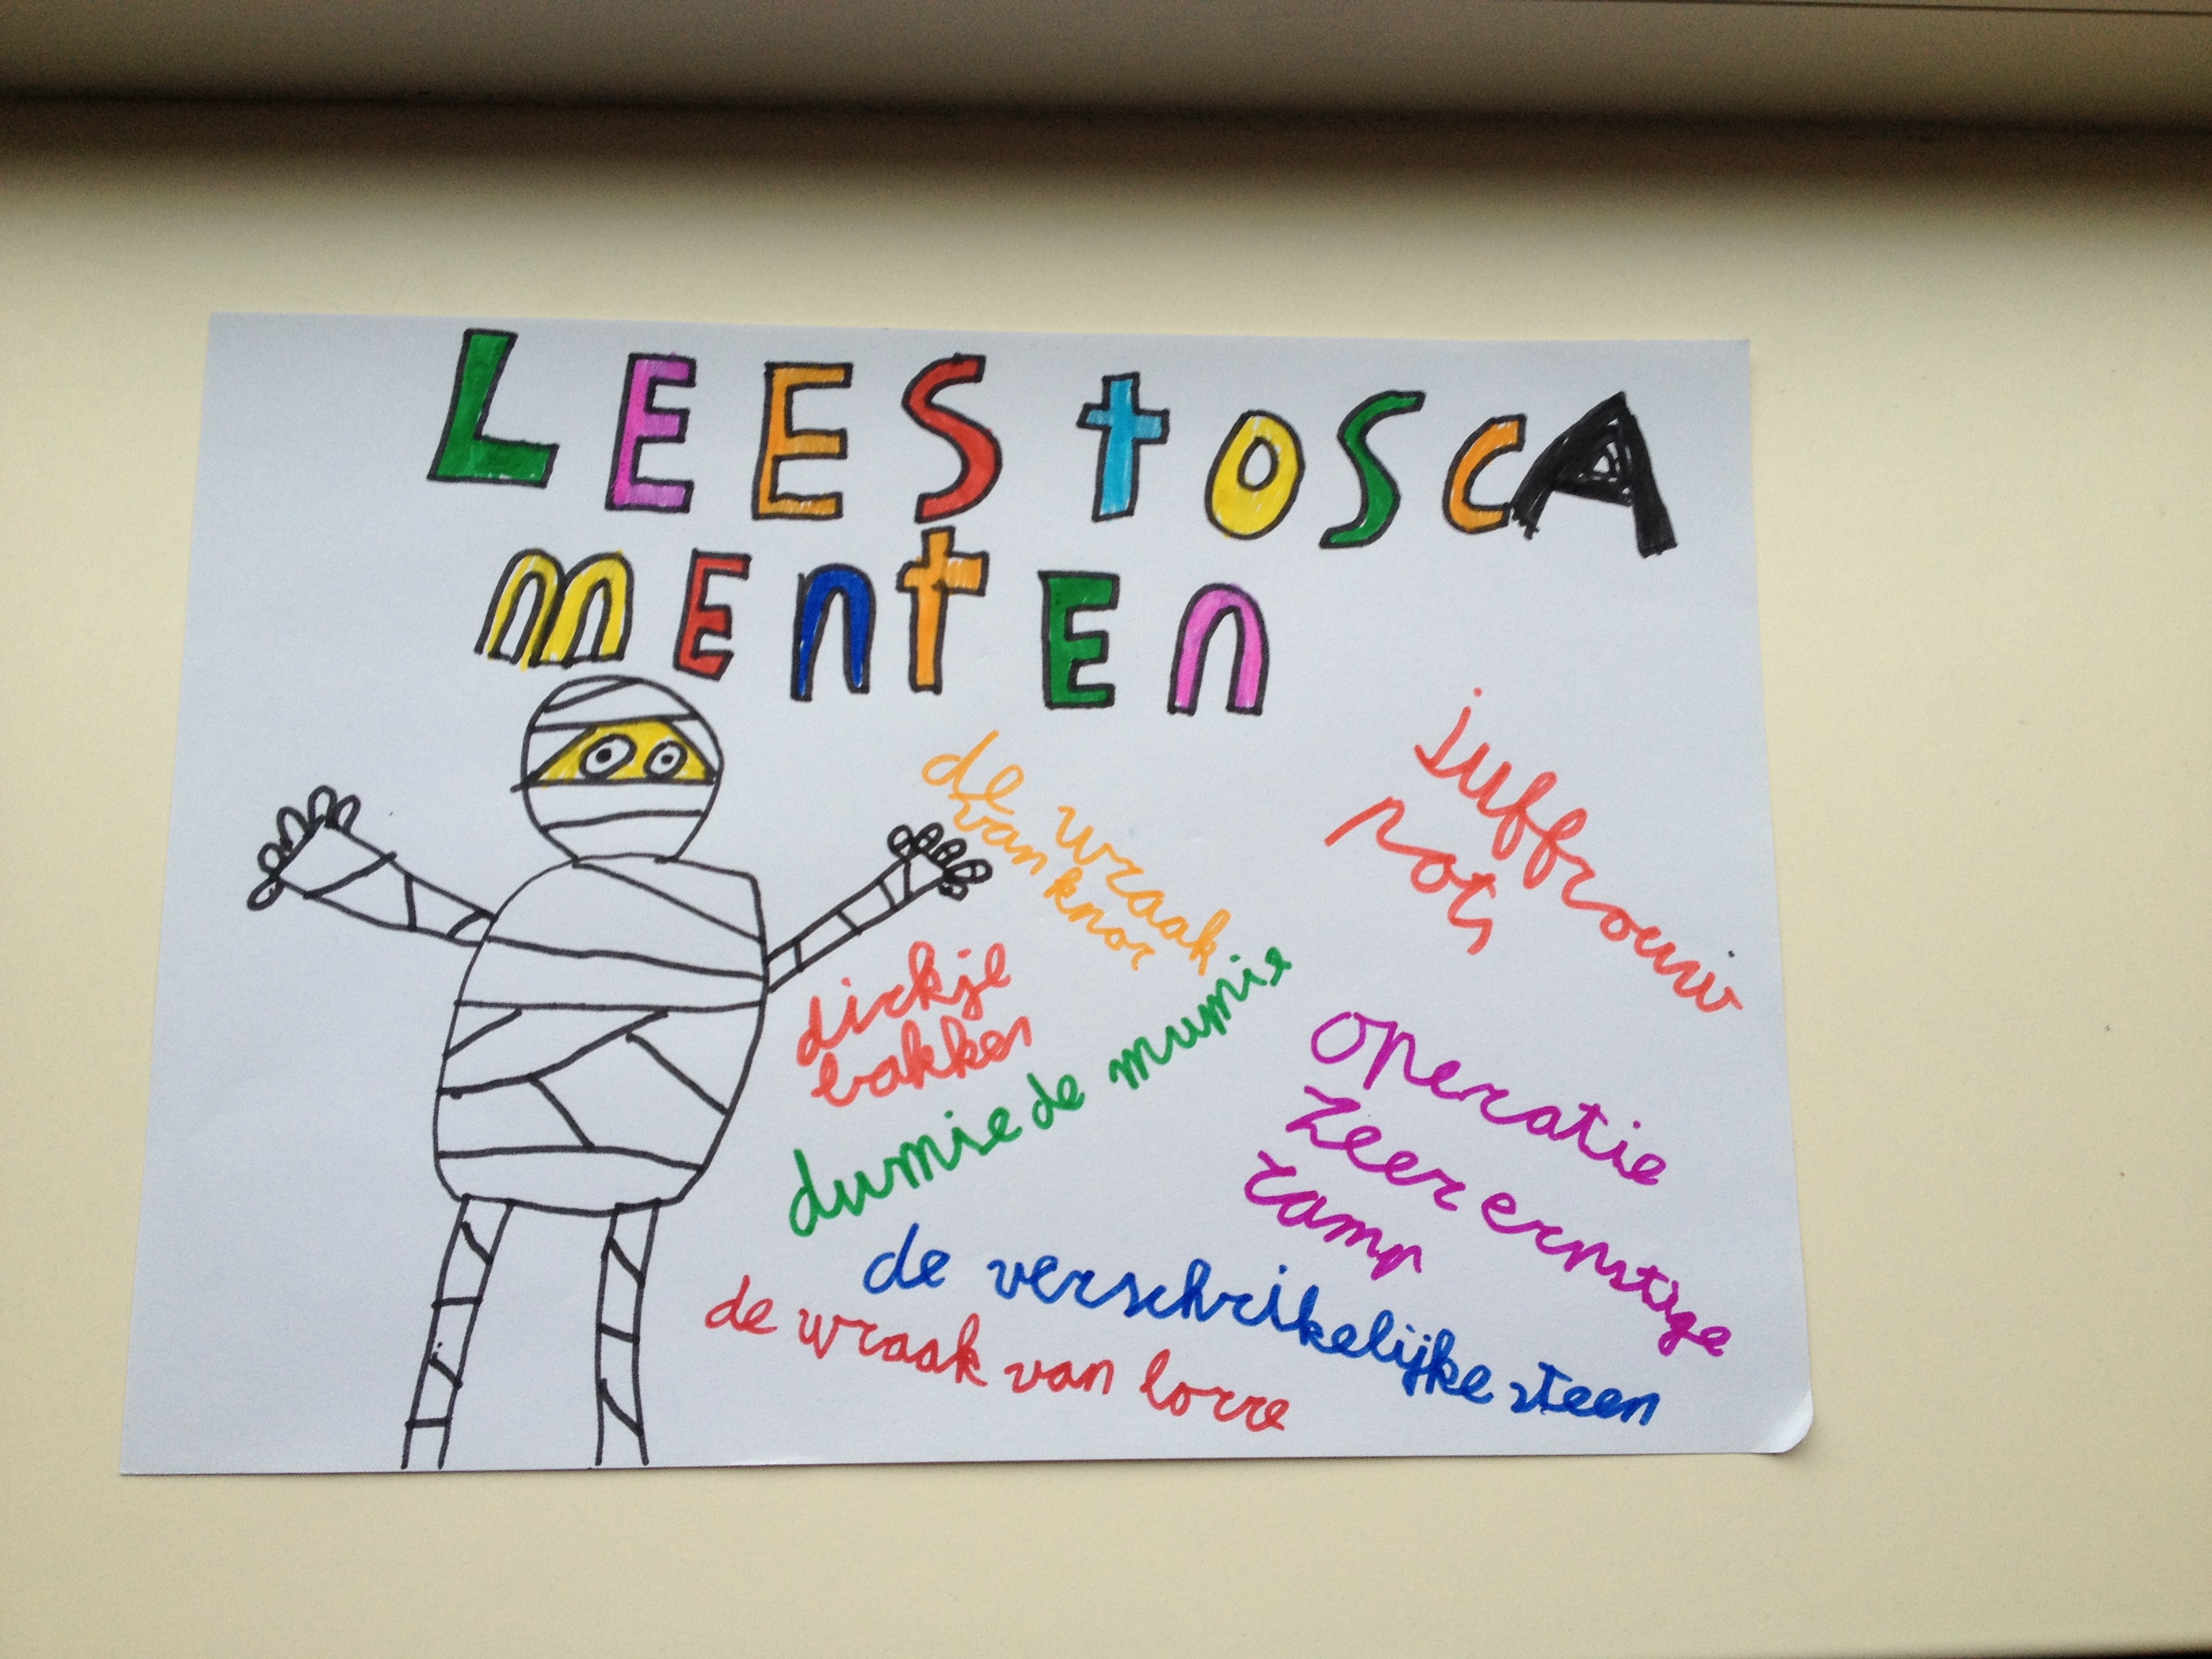 LEES tOSCA
mEntEn
de wraak
van knor
juffrouw
pots
dirkje
bakken
dumie de mumie
operatie
zeer ernstige
ramp
de verschrikelijke steen
de wraak van lorre